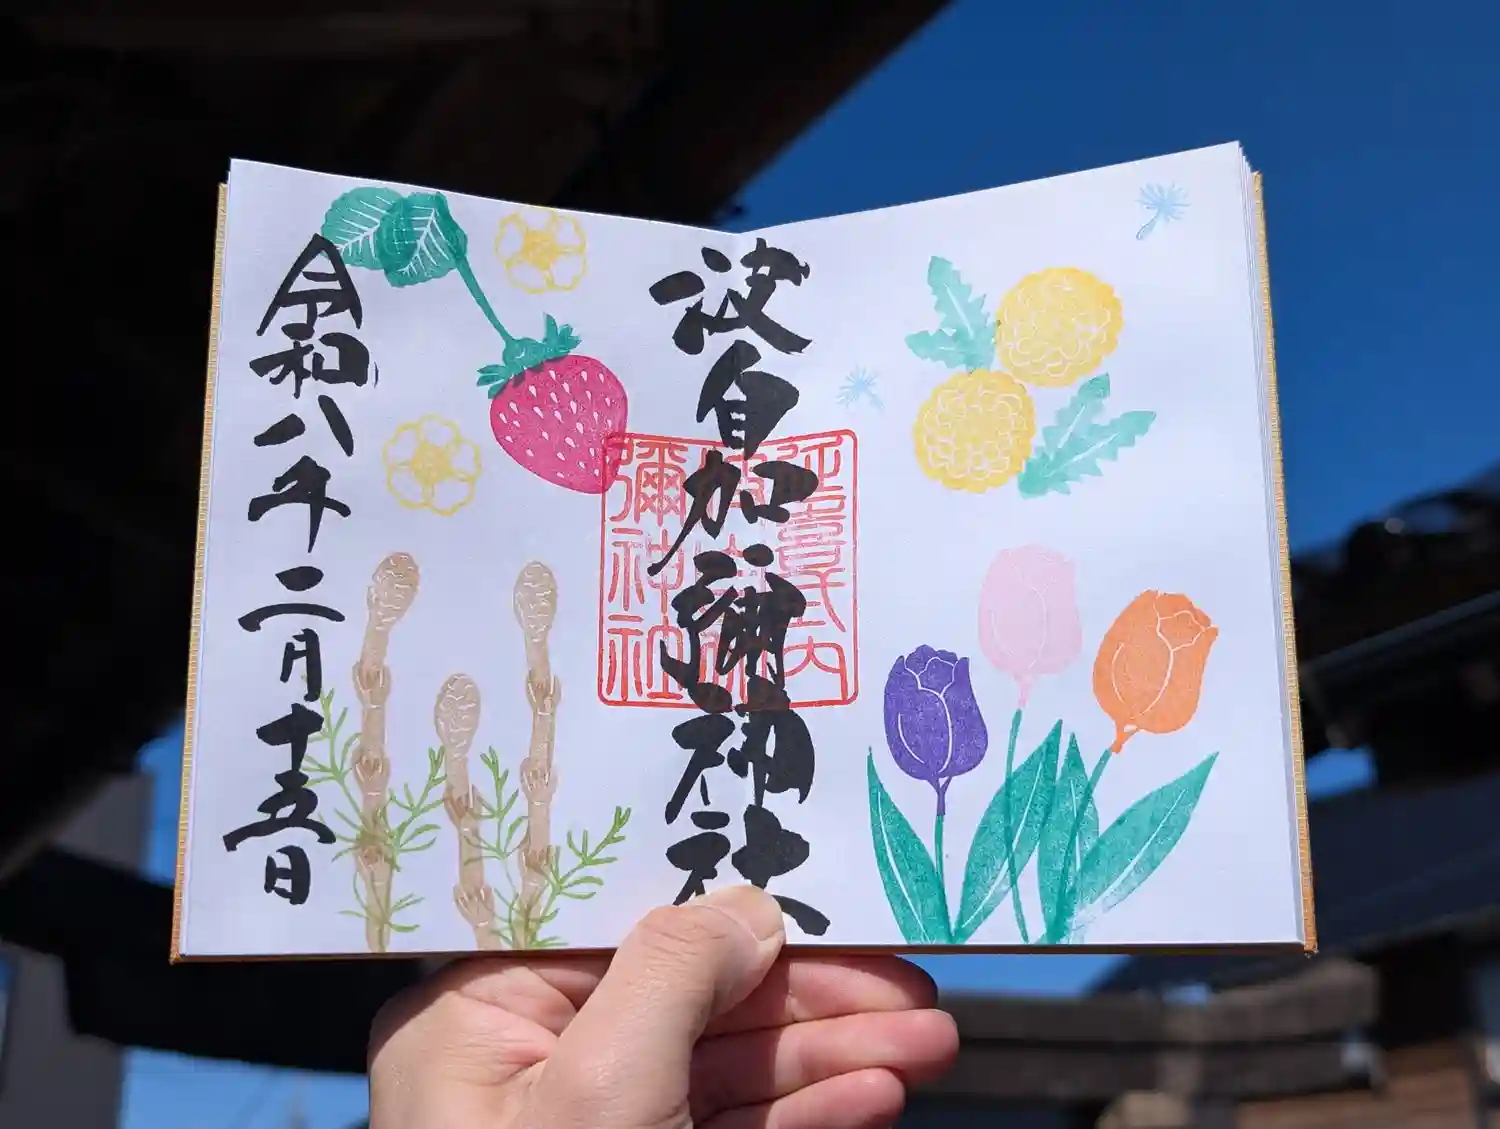 波自加彌神社
延喜式内
波自加
彌神社
令和八年二月十五日